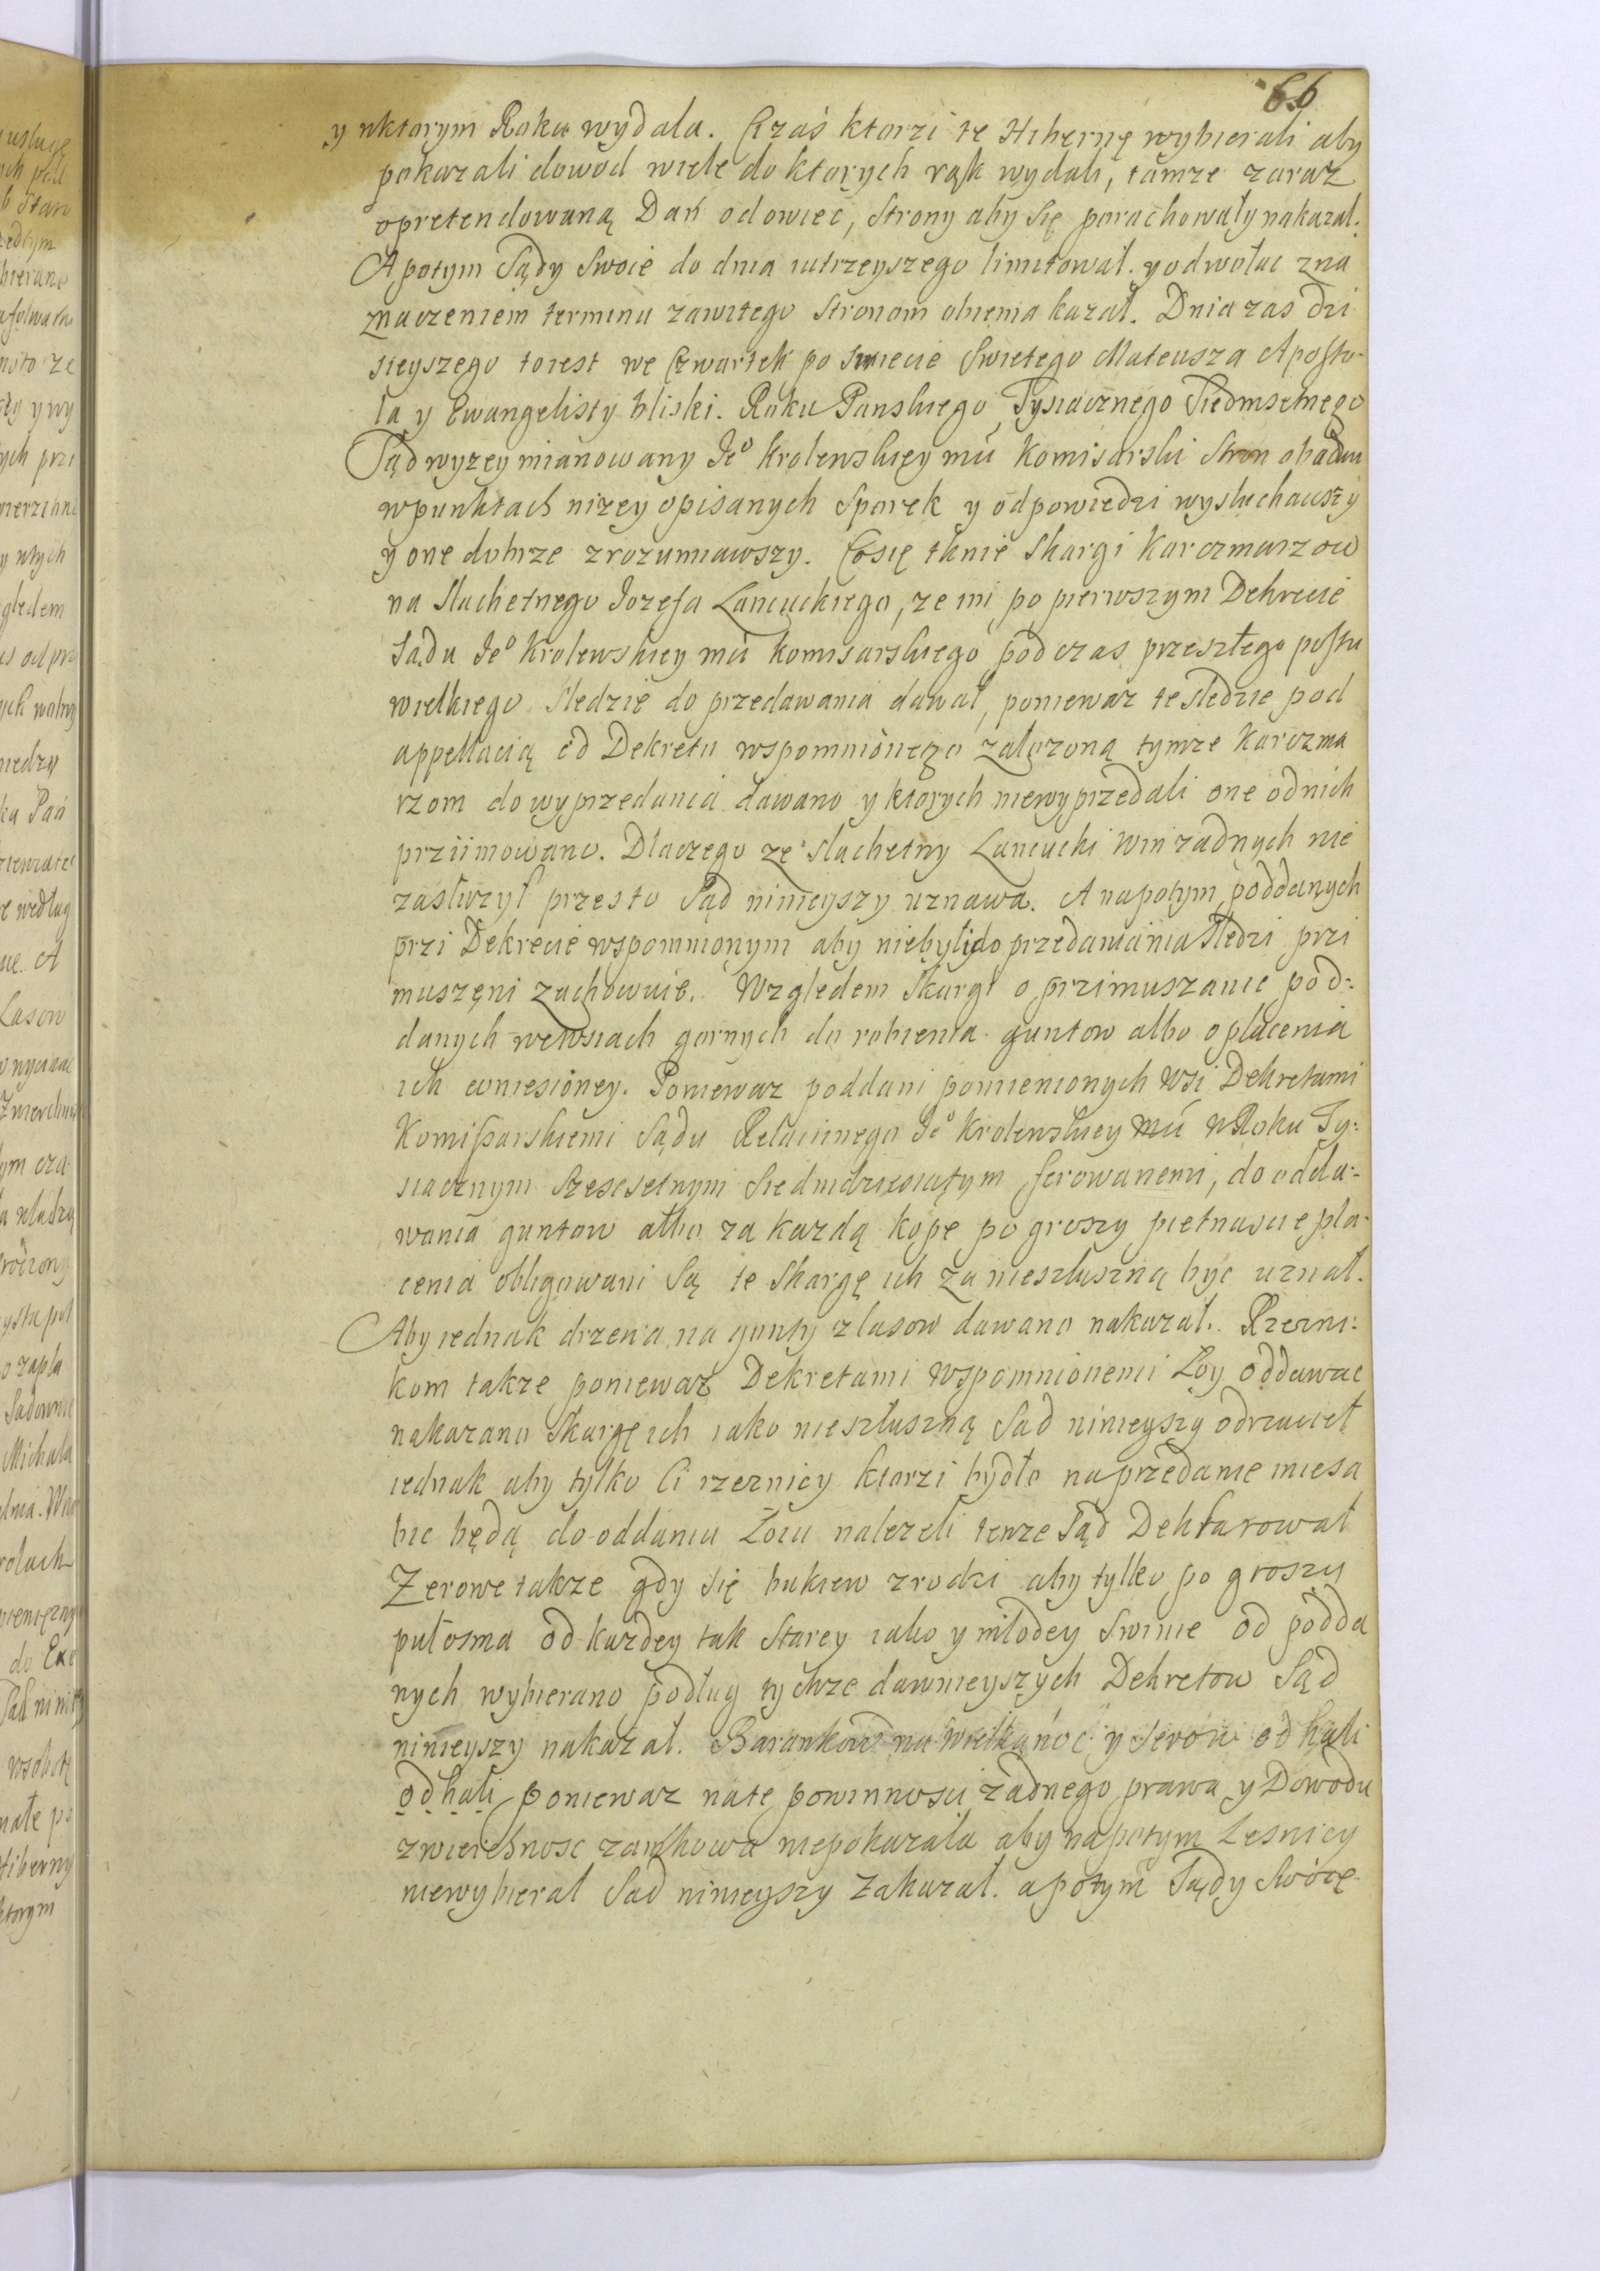 66
y wktorym Roku wydala. Czaś ktorzi te Hibernę wybierali aby
pokazali dowod wiele do ktorych rąk wydali, tamze zaraz
opretendowaną Dań odowiec, Strony aby się porachowały nakazał.
A potym Sądy Swoie do dnia iutrzeyszego limitował. y odwołac zna
znaczeniem terminu zawitego Stronom oboma kazał. Dnia zas dzi
sieyszego toiest we Czwartek po Swiecie Swietego Mateusza Aposto-
ła y Ewangelisty bliski. Roku Panskiego Tysiącznego Siedmsetnego
Sąd wyzey mianowany Jeo Krolewskiey mci Komisarski Stron obudwu
wpunktach nizey opisanych Sporek y odpowiedzi wysłuchawszy
y one dobrze zrozumiawszy. Cosię tknie Skargi Karczmarzow
na Slachetnego Jozefa Lancuckiego, ze im po pierwszym Dekrecie
Sądu Jeo Krolewskiey mci Komisarskiego pod czas przeszłego postu
wielkiego Sledzie do przedawania dawał, poniewaz te sledzie pod
appellacią od Dekretu wspomnionego założoną tymze Karczma
rzom do wyprzedania dawano y ktorych niewyprzedali one odnich
przyimowano. Dlaczego ze Slachetny Lancucki win zadnych nie
zasłuzył przesto Sąd ninieyszy uznawa. A napotym poddanych
przi Dekrecie wspomnionym aby niebyli do przedawania Sledzi przi
muszęni zachowuie. Względem Skargi o przimuszanie pod:
danych wewsiach gornych do robienia guntow albo opłacenia
ich wniesioney. Poniewaz poddani pomienionych wsi Dekretami
Komissarskiemi Sądu Relaciinego Jeo Krolewskiey mci wRoku Ty:
siącznym Szescsetnym Siedmdziesiątym ferowanemi, do odda:
wania guntow albo za kazdą kopę po groszy pietnascie pła-
cenia obligowani Są te Skargę ich za nieszłuszną być uznał.
Aby iednak drzewa na gunty zlasow dawano nakazał. Rzezni:
kom takze poniewaz Dekretami wspomnionemi Loy oddawac
nakazano Skargę ich iako nieszłuszną Sad ninieyszy odrzucieł
iednak aby tylko Ci rzeznicy ktorzi bydło naprzedanie miesa
bic będą do oddania Łoiu nalezeli tenze Sąd Deklarował
Zerowe takze gdy się bukiew zrodzi aby tylko po groszy
pułosma od kazdey tak Starey iako y młodey Swinie od podda
nych wybierano podług tychze dawnieyszych Dekretow Sąd
ninieyszy nakazał. Barankow na Wielkanoc y Serow od hali
od hali poniewaz natę powinnosci żadnego prawa y Dowodu
zwierchnosc zamkowa niepokazała aby napotym Lesnicy
niewybierał Sad ninieyszy zakazał. apotym Sądy Swóię